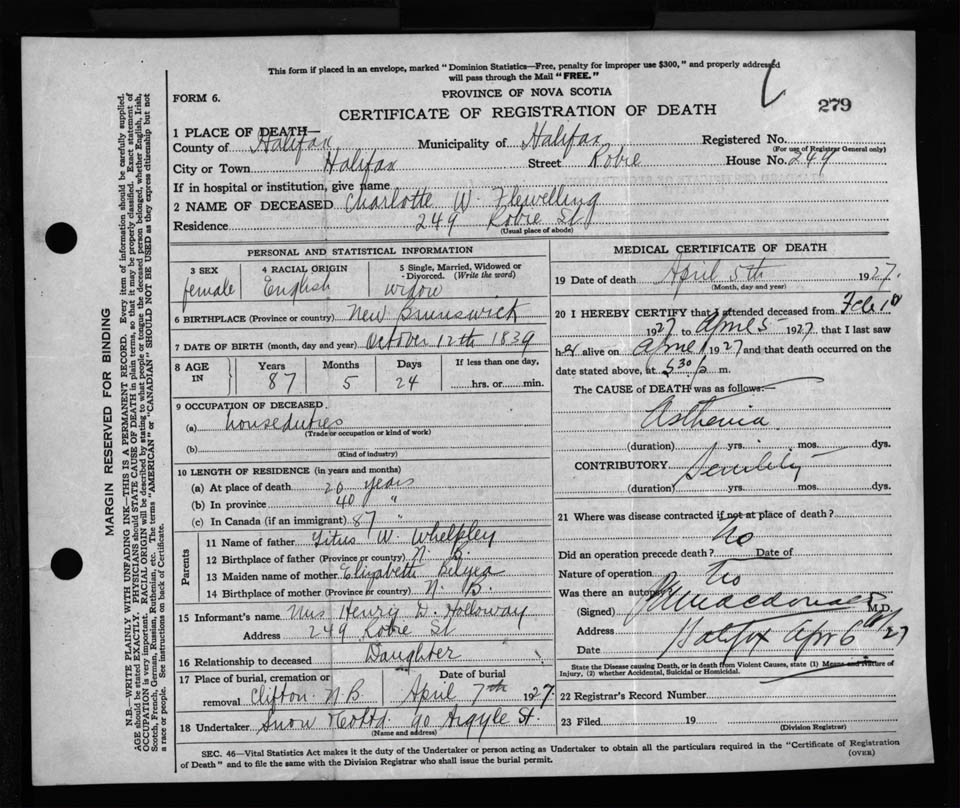 This form if placed in an envelope, marked "Dominion Statistics—Free, penalty for improper use $300," and properly addressed
will pass through the Mail "FREE."
FORM 6.
PROVINCE OF NOVA SCOTIA
279
CERTIFICATE OF REGISTRATION OF DEATH
1 PLACE OF DEATH—
County of Halifax Municipality of Halifax Registered No.
(For use of Registrar General only)
City or Town Halifax Street Robie House No. 249
If in hospital or institution, give name
2 NAME OF DECEASED Charlotte W. Flewelling
Residence 249 Robie St
(Usual place of abode)
PERSONAL AND STATISTICAL INFORMATION
3 SEX 4 RACIAL ORIGIN 5 Single, Married, Widowed or
Divorced. (Write the word)
female English widow
6 BIRTHPLACE (Province or country) New Brunswick
7 DATE OF BIRTH (month, day and year) October 12th 1839
8 AGE IN Years Months Days If less than one day,
87 5 24 hrs. or min.
9 OCCUPATION OF DECEASED
(a) house duties
(Trade or occupation or kind of work)
(b)
(Kind of industry)
10 LENGTH OF RESIDENCE (in years and months)
(a) At place of death 20 years
(b) In province 40 "
(c) In Canada (if an immigrant) 87 "
Parents
11 Name of father Titus W. Whelpley
12 Birthplace of father (Province or country) N. B.
13 Maiden name of mother Elizabeth Belyea
14 Birthplace of mother (Province or country) N. B.
15 Informant's name Mrs Henry D. Holloway
Address 249 Robie St
16 Relationship to deceased Daughter
17 Place of burial, cremation or Date of burial
removal Clifton N.B. April 7th 1927.
18 Undertaker Snow & Co Ltd. 90 Argyle St.
(Name and address)
MEDICAL CERTIFICATE OF DEATH
19 Date of death April 5th 1927.
(Month, day and year)
20 I HEREBY CERTIFY that I attended deceased from Feb 10
1927 to April 5 1927, that I last saw
her alive on April 1927 and that death occurred on the
date stated above, at 5.30 p. m.
The CAUSE of DEATH was as follows:—
Asthenia
(duration) yrs. mos. dys.
CONTRIBUTORY Senility
(duration) yrs. mos. dys.
21 Where was disease contracted if not at place of death?
No
Did an operation precede death? Date of
Nature of operation No
Was there an autopsy
(Signed) Macdonald M.D.
Address Halifax
Date Apr 6 /27
State the Disease causing Death, or in death from Violent Causes, state (1) Means and Nature of
Injury, (2) whether Accidental, Suicidal or Homicidal.
22 Registrar's Record Number
23 Filed 19
(Division Registrar)
SEC. 46—Vital Statistics Act makes it the duty of the Undertaker or person acting as Undertaker to obtain all the particulars required in the "Certificate of Registration
of Death" and to file the same with the Division Registrar who shall issue the burial permit.
(OVER)
MARGIN RESERVED FOR BINDING
N.B.—WRITE PLAINLY WITH UNFADING INK—THIS IS A PERMANENT RECORD. Every item of information should be carefully supplied.
AGE should be stated EXACTLY. PHYSICIANS should STATE CAUSE OF DEATH in plain terms, so that it may be properly classified. Exact statement of
OCCUPATION is very important. RACIAL ORIGIN will be described by stating to what people or tongue the deceased person belonged, whether English, Irish,
Scotch, French, German, Russian, Ruthenian, etc. The terms "AMERICAN" or "CANADIAN" SHOULD NOT BE USED as they express citizenship but not
a race or people. See instructions on back of Certificate.